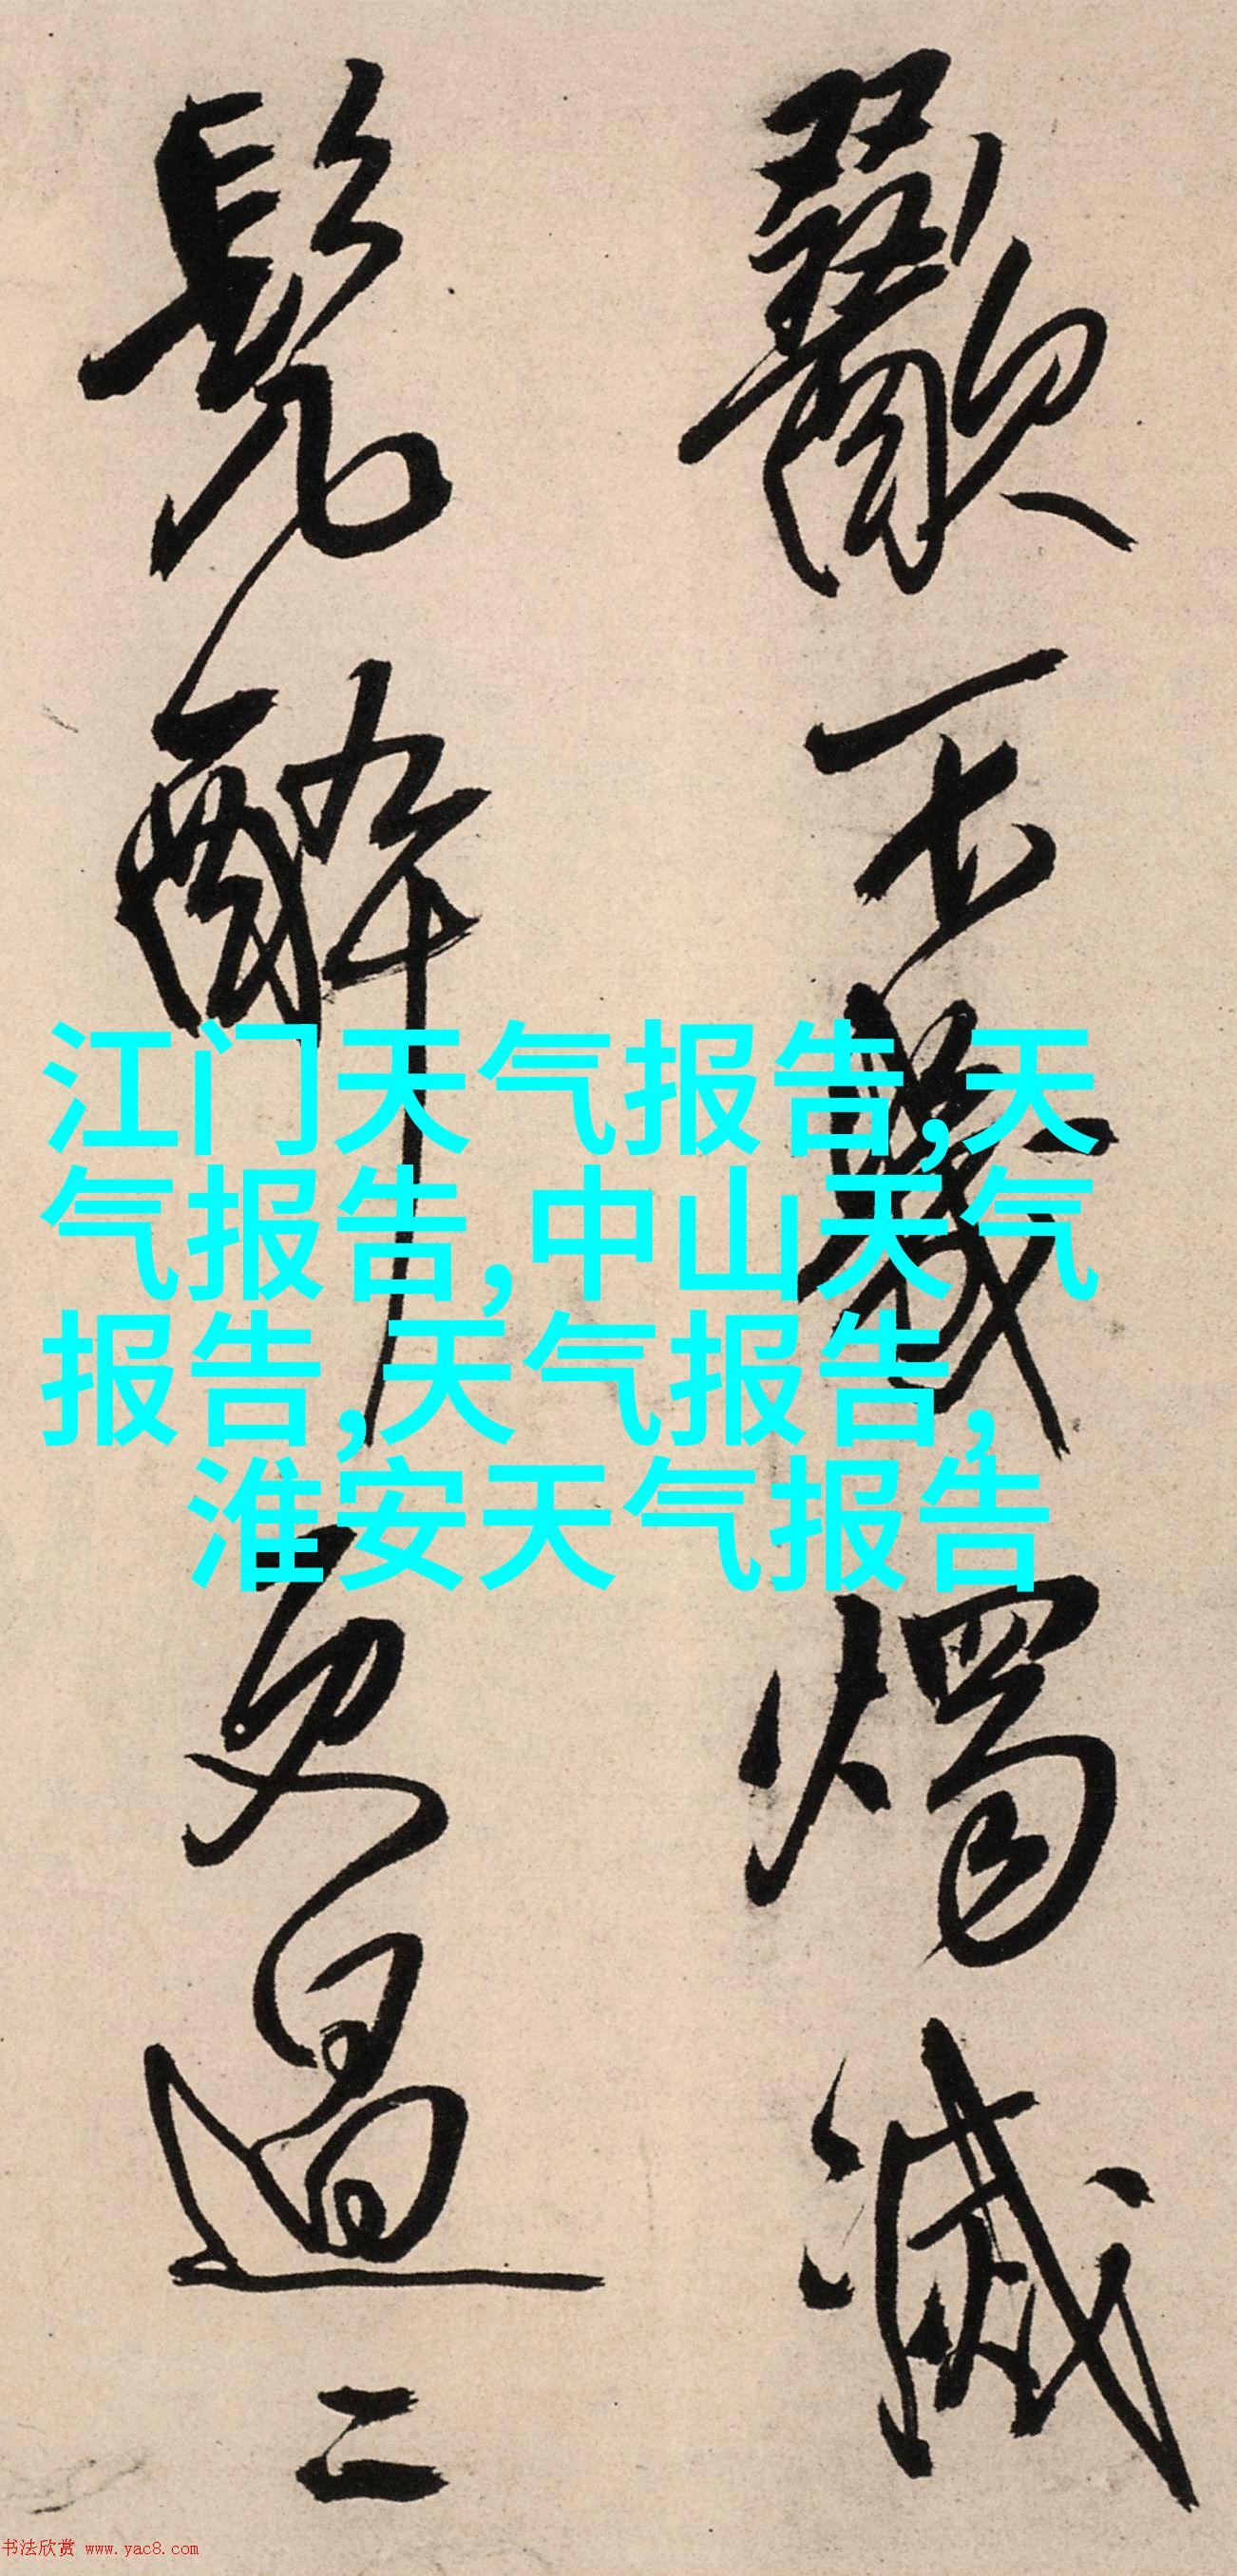 歠不幾燭滅
鬓醉 更過二
江门天气报告,天
气报告,中山天气
报告,天气报告,
淮安天气报告
书法欣赏 www.yac8.com